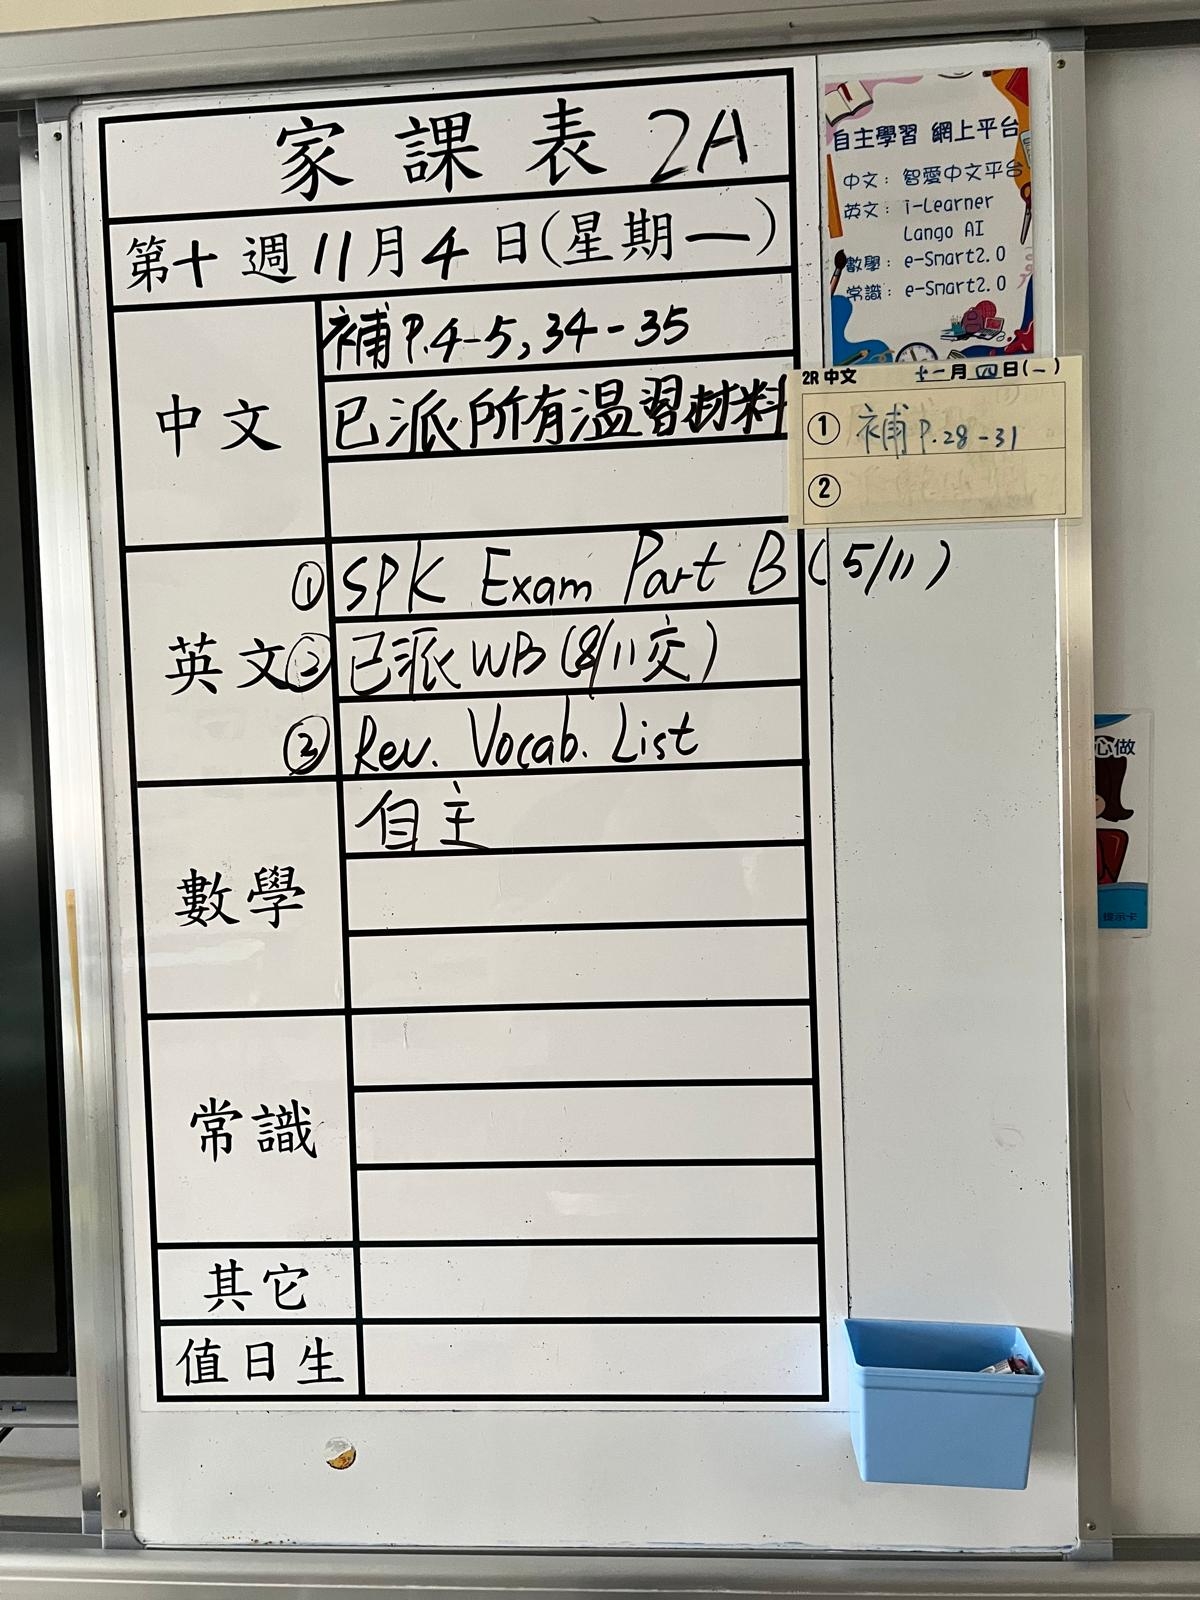 家課表 2A
第十週11月4日(星期一)
中文
補P.4-5, 34-35
已派所有溫習材料
英文
① SPK Exam Part B (5/11)
② 已派WB(8/11交)
③ Rev. Vocab. List
數學
自主
常識
其它
值日生
自主學習 網上平台
中文: 智愛中文平台
英文: i-Learner
Lango AI
數學: e-Smart2.0
常識: e-Smart2.0
2R 中文 十一月四日(一)
① 補P.28-31
②
心做
提示卡